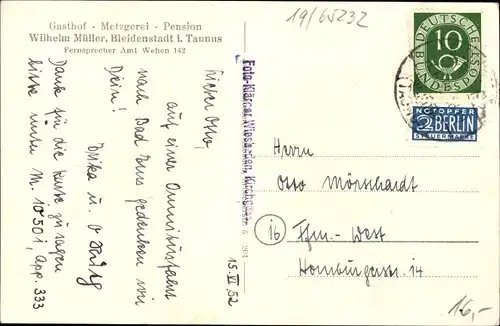 Gasthof - Metzgerei - Pension
Wilhelm Müller, Bleidenstadt i. Taunus
Fernsprecher Amt Wehen 142
19/65232
DEUTSCHE BUNDESPOST
10
NOTOPFER
2 BERLIN
STEUERMARKE
Foto-Klärner, Wiesbaden, Kirchgasse
15. VI. 52
Lieber Otto,
auf einer Omnibusfahrt
nach Bad Ems gedenken wir
Dein!
Erika u.
Danke für die Karte zu sagen
bitte unter M. 10501, App. 333
Herrn
Otto Mörschardt
16 Ffm.- West
Homburgerstr. 14
16,-